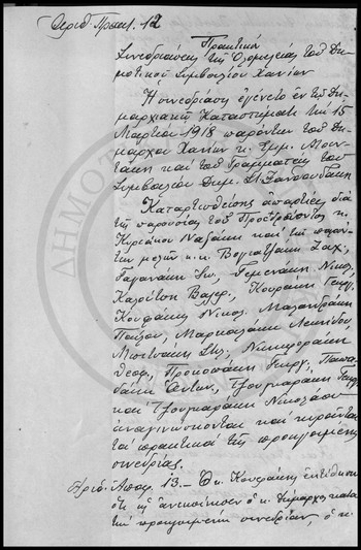 Αριθ. Πρακτ. 12
Πρακτικά
Συνεδριάσεως της Ολομελείας του Δη-
μοτικού Συμβουλίου Χανίων
Η συνεδρίασις εγένετο εν τω Δη-
μαρχιακώ Καταστήματι τη 15
Μαρτίου 1918 παρόντων του Δη-
μάρχου Χανίων κ. Εμμ. Μουν-
τάκη και του Γραμματέως του
Συμβουλίου Δημ. Ξανθουδάκη
Καταρτισθείσης απαρτίας δια
της παρουσίας του Προεδρεύοντος κ.
Κυριάκου Ναξάκη και των παρόν-
των μελών κ.κ. Βογιατζάκη Ζαχ.
Γαγανάκη Ιω., Τεμενάκη Νικολ.
Καλοΐτση Βαλερ., Κουράκη Γεωρ.
Κουφάκη Νικολ.
Παύλου, Μαρκουλάκη Λεωνίδου,
Νικηφοράκη
Θεοφ., Προκοπάκη Γεωργ., Παπα-
δάκη Αντων., Τζουγκαράκη Γεωρ
και Τζουγκαράκη Νικολάου
αναγινώσκονται και κυρούνται
τα πρακτικά της προηγουμένης
συνεδρίας.
Αριθ. Αποφ. 13. - Ο κ. Κουφάκης
ότι ως ανεκοίνωσεν ο κ. Δήμαρχος κατά
την προηγουμένην συνεδρίαν, ο κ.
ΔΗΜΟΤ